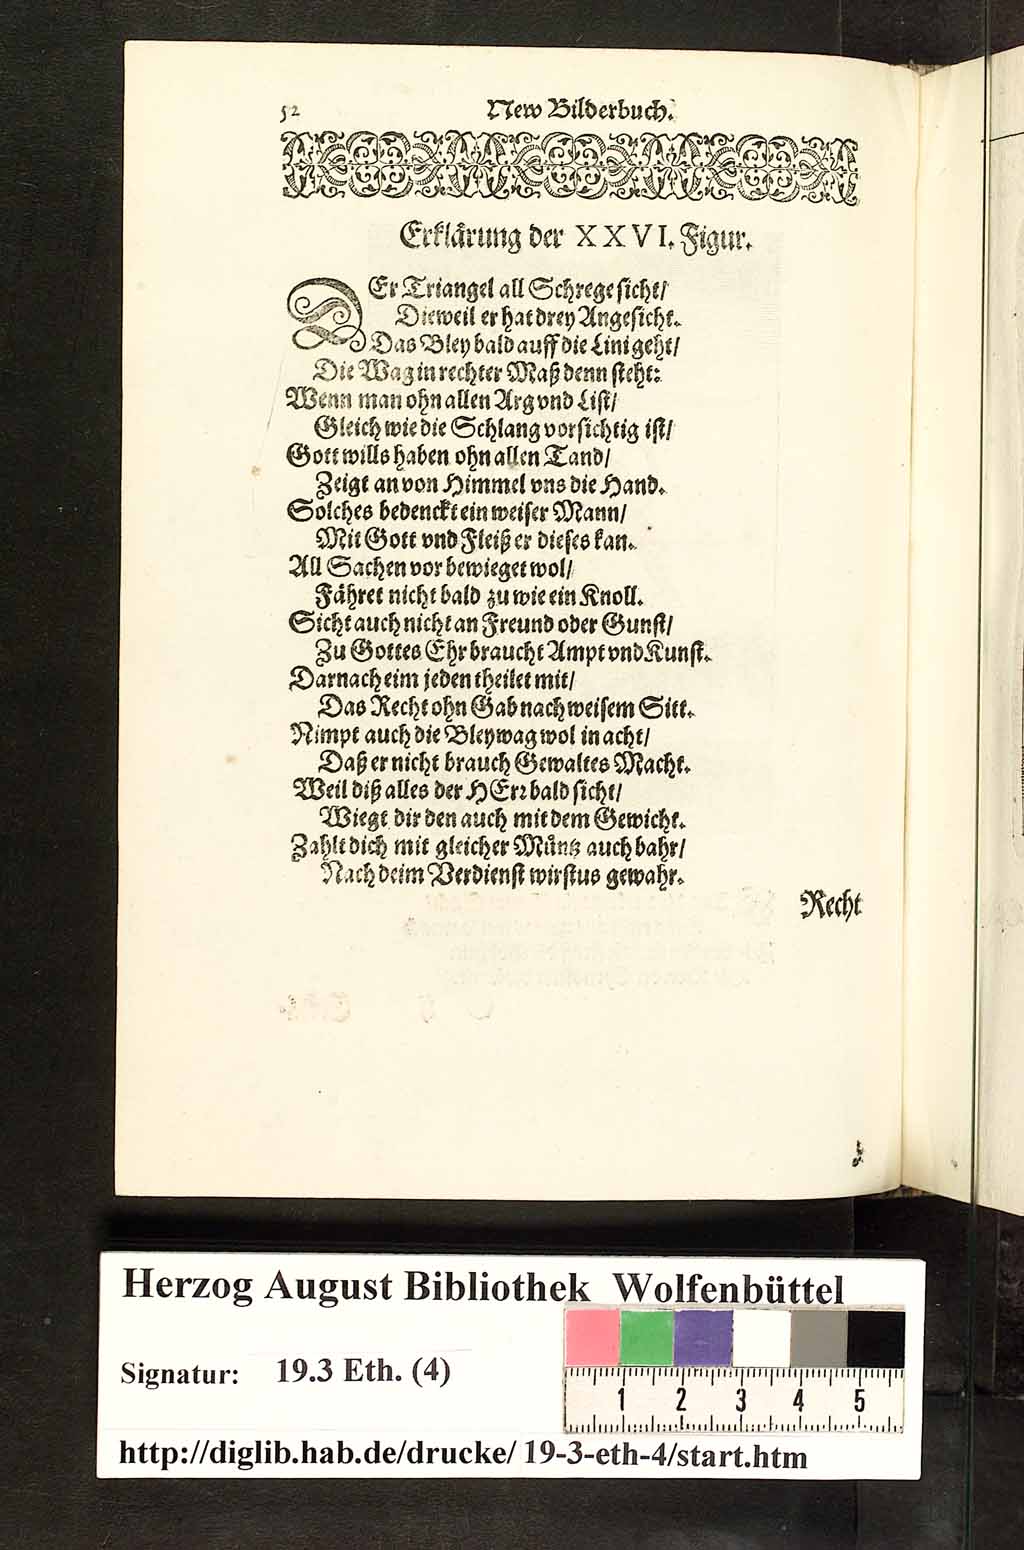 52 New Bilderbuch.
Erklärung der XXVI. Figur.
DEr Triangel all Schrege sicht/
Dieweil er hat drey Angesicht.
Das Bley bald auff die Lini geht/
Die Wag in rechter Maß denn steht:
Wenn man ohn allen Arg vnd List/
Gleich wie die Schlang vorsichtig ist/
Gott wills haben ohn allen Tand/
Zeigt an von Himmel vns die Hand.
Solches bedenckt ein weiser Mann/
Mit Gott vnd Fleiß er dieses kan.
All Sachen vor bewieget wol/
Fähret nicht bald zu wie ein Knoll.
Sicht auch nicht an Freund oder Gunst/
Zu Gottes Ehr braucht Ampt vnd Kunst.
Darnach eim jeden theilet mit/
Das Recht ohn Gab nach weisem Sitt.
Nimpt auch die Bleywag wol in acht/
Daß er nicht brauch Gewaltes Macht.
Weil diß alles der HErr bald sicht/
Wiegt dir den auch mit dem Gewicht.
Zahlt dich mit gleicher Müntz auch bahr/
Nach deim Verdienst wirstus gewahr.
Recht
Herzog August Bibliothek Wolfenbüttel
Signatur: 19.3 Eth. (4)
1 2 3 4 5
http://diglib.hab.de/drucke/ 19-3-eth-4/start.htm